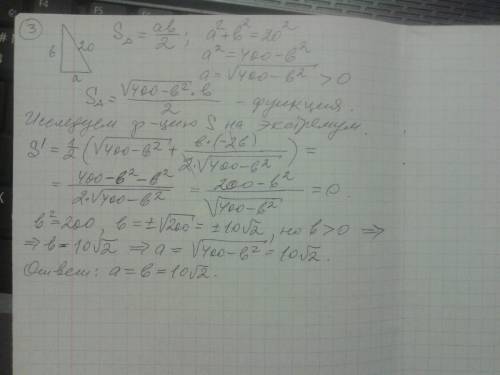 ③ S△ = ab/2 ; a² + b² = 20²
b 20 a
a² = 400 - b²
a = √(400 - b²) > 0
S△ = √(400 - b²) · b / 2 - функция.
Исследуем ф-цию S на экстремум.
S' = 1/2 (√(400 - b²) + b·(-2b) / 2·√(400 - b²)) =
= (400 - b² - b²) / 2·√(400 - b²) = (200 - b²) / √(400 - b²) = 0.
b² = 200, b = ±√200 = ±10√2, но b > 0 ⇒
⇒ b = 10√2 ⇒ a = √(400 - b²) = 10√2.
Ответ: a = b = 10√2.